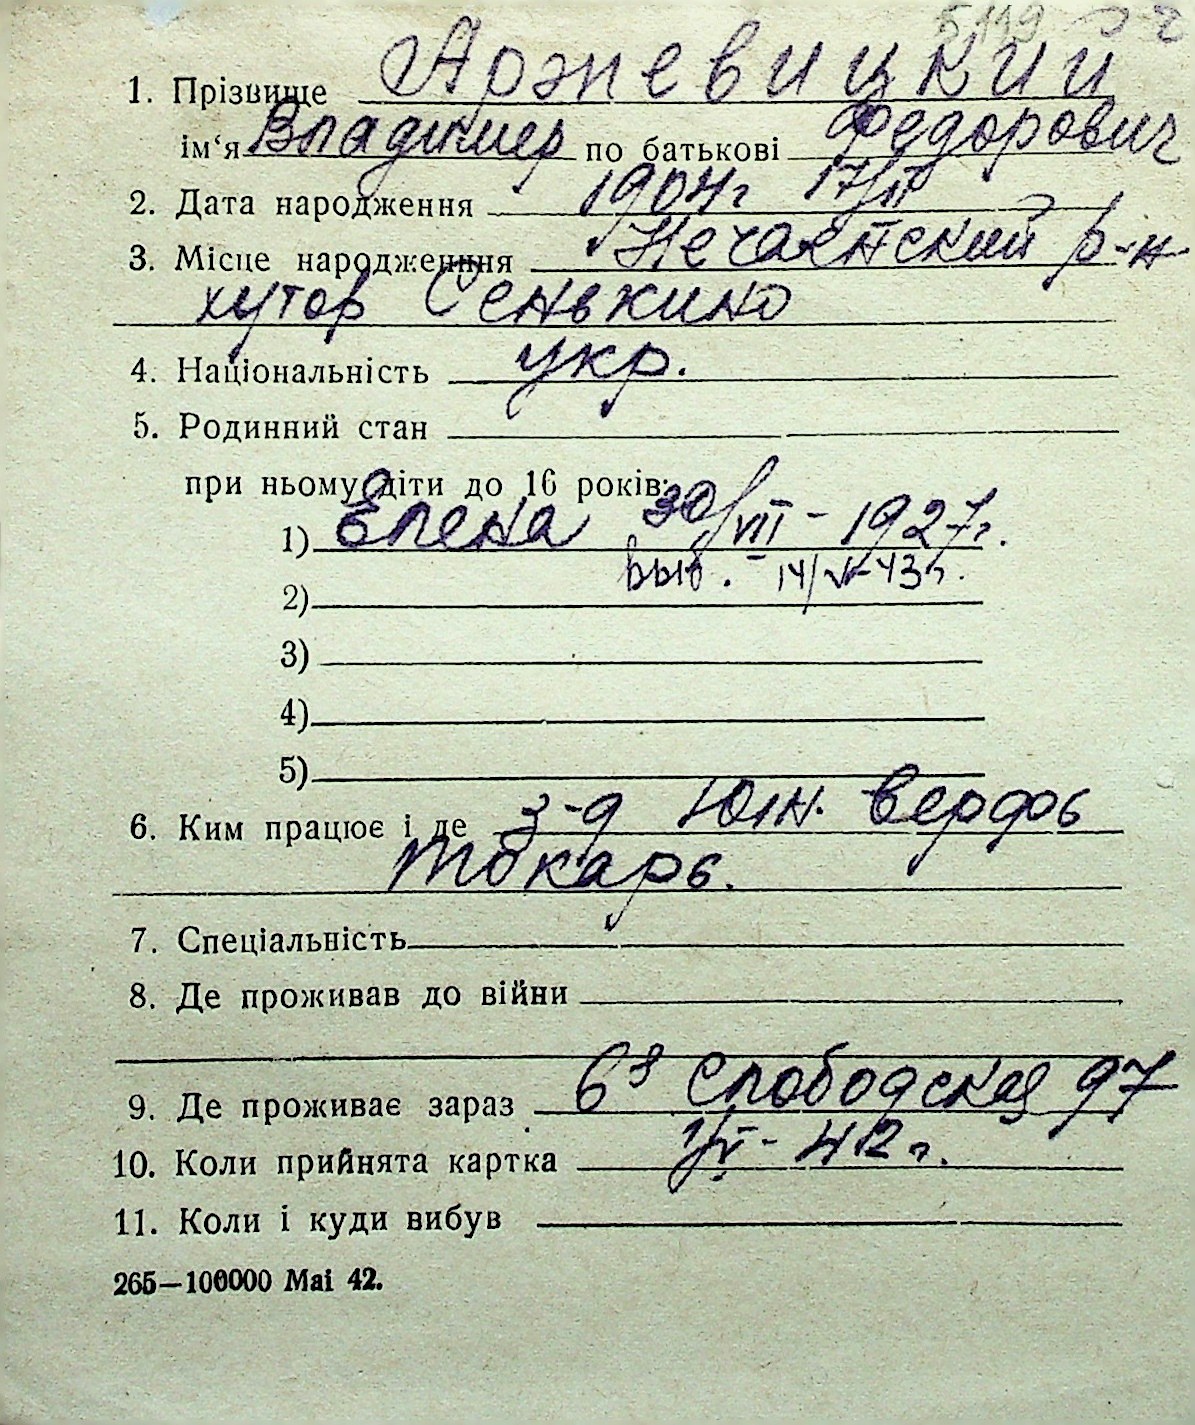 5119
1. Прізвище Аржевицкий
ім‘я Владимер по батькові Федорович
2. Дата народження 1904г 17/II
3. Місце народженння Нечаянский р-н
хутор Сенькино
4. Національність укр.
5. Родинний стан
при ньому діти до 16 років:
1) Елена 30/VIII - 1927г.
2) выб. - 14/V-43г.
3)
4)
5)
6. Ким працює і де з-д Юж. верфь
токарь.
7. Спеціальність
8. Де проживав до війни
9. Де проживає зараз 6я Слободская 97
10. Коли прийнята картка 1/V - 42г.
11. Коли і куди вибув
265—100000 Mai 42.